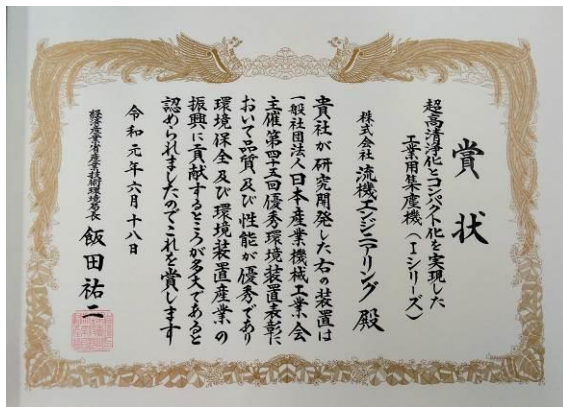 賞状
超高清浄化とコンパクト化を実現した
工業用集塵機(Iシリーズ)
株式会社 流機エンジニアリング 殿
貴社が研究開発した右の装置は
一般社団法人日本産業機械工業会
主催第四十五回優秀環境装置表彰に
おいて品質及び性能が優秀であり
環境保全及び環境装置産業の
振興に貢献するところが多大であると
認められましたのでこれを賞します
令和元年六月十八日
経済産業省産業技術環境局長 飯田祐二